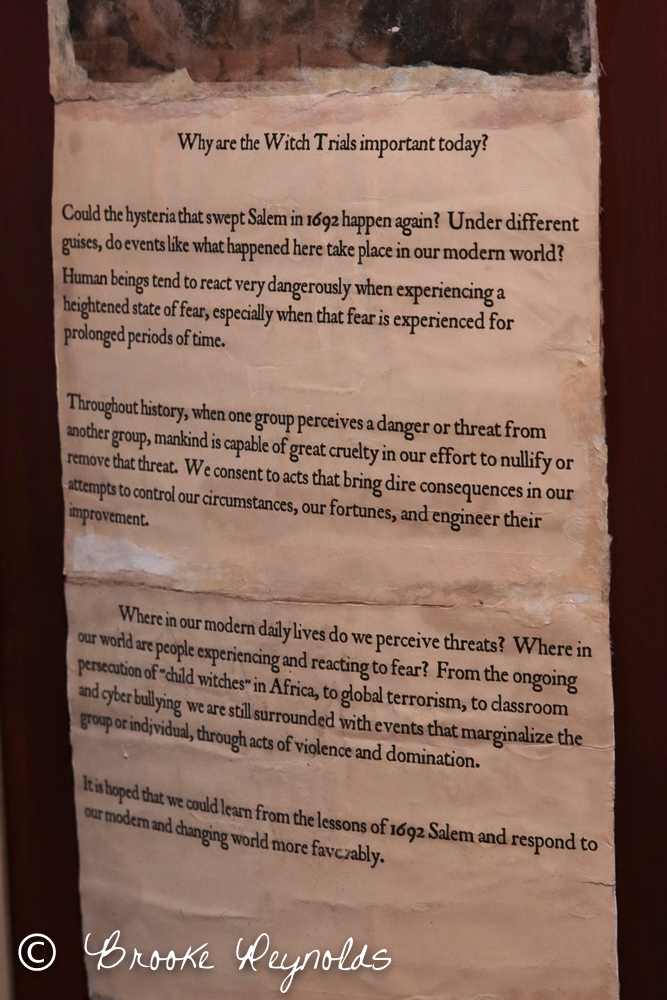 Why are the Witch Trials important today?
Could the hysteria that swept Salem in 1692 happen again? Under different
guises, do events like what happened here take place in our modern world?
Human beings tend to react very dangerously when experiencing a
heightened state of fear, especially when that fear is experienced for
prolonged periods of time.
Throughout history, when one group perceives a danger or threat from
another group, mankind is capable of great cruelty in our effort to nullify or
remove that threat. We consent to acts that bring dire consequences in our
attempts to control our circumstances, our fortunes, and engineer their
improvement.
Where in our modern daily lives do we perceive threats? Where in
our world are people experiencing and reacting to fear? From the ongoing
persecution of "child witches" in Africa, to global terrorism, to classroom
and cyber bullying we are still surrounded with events that marginalize the
group or individual, through acts of violence and domination.
It is hoped that we could learn from the lessons of 1692 Salem and respond to
our modern and changing world more favorably.
© Brooke Reynolds